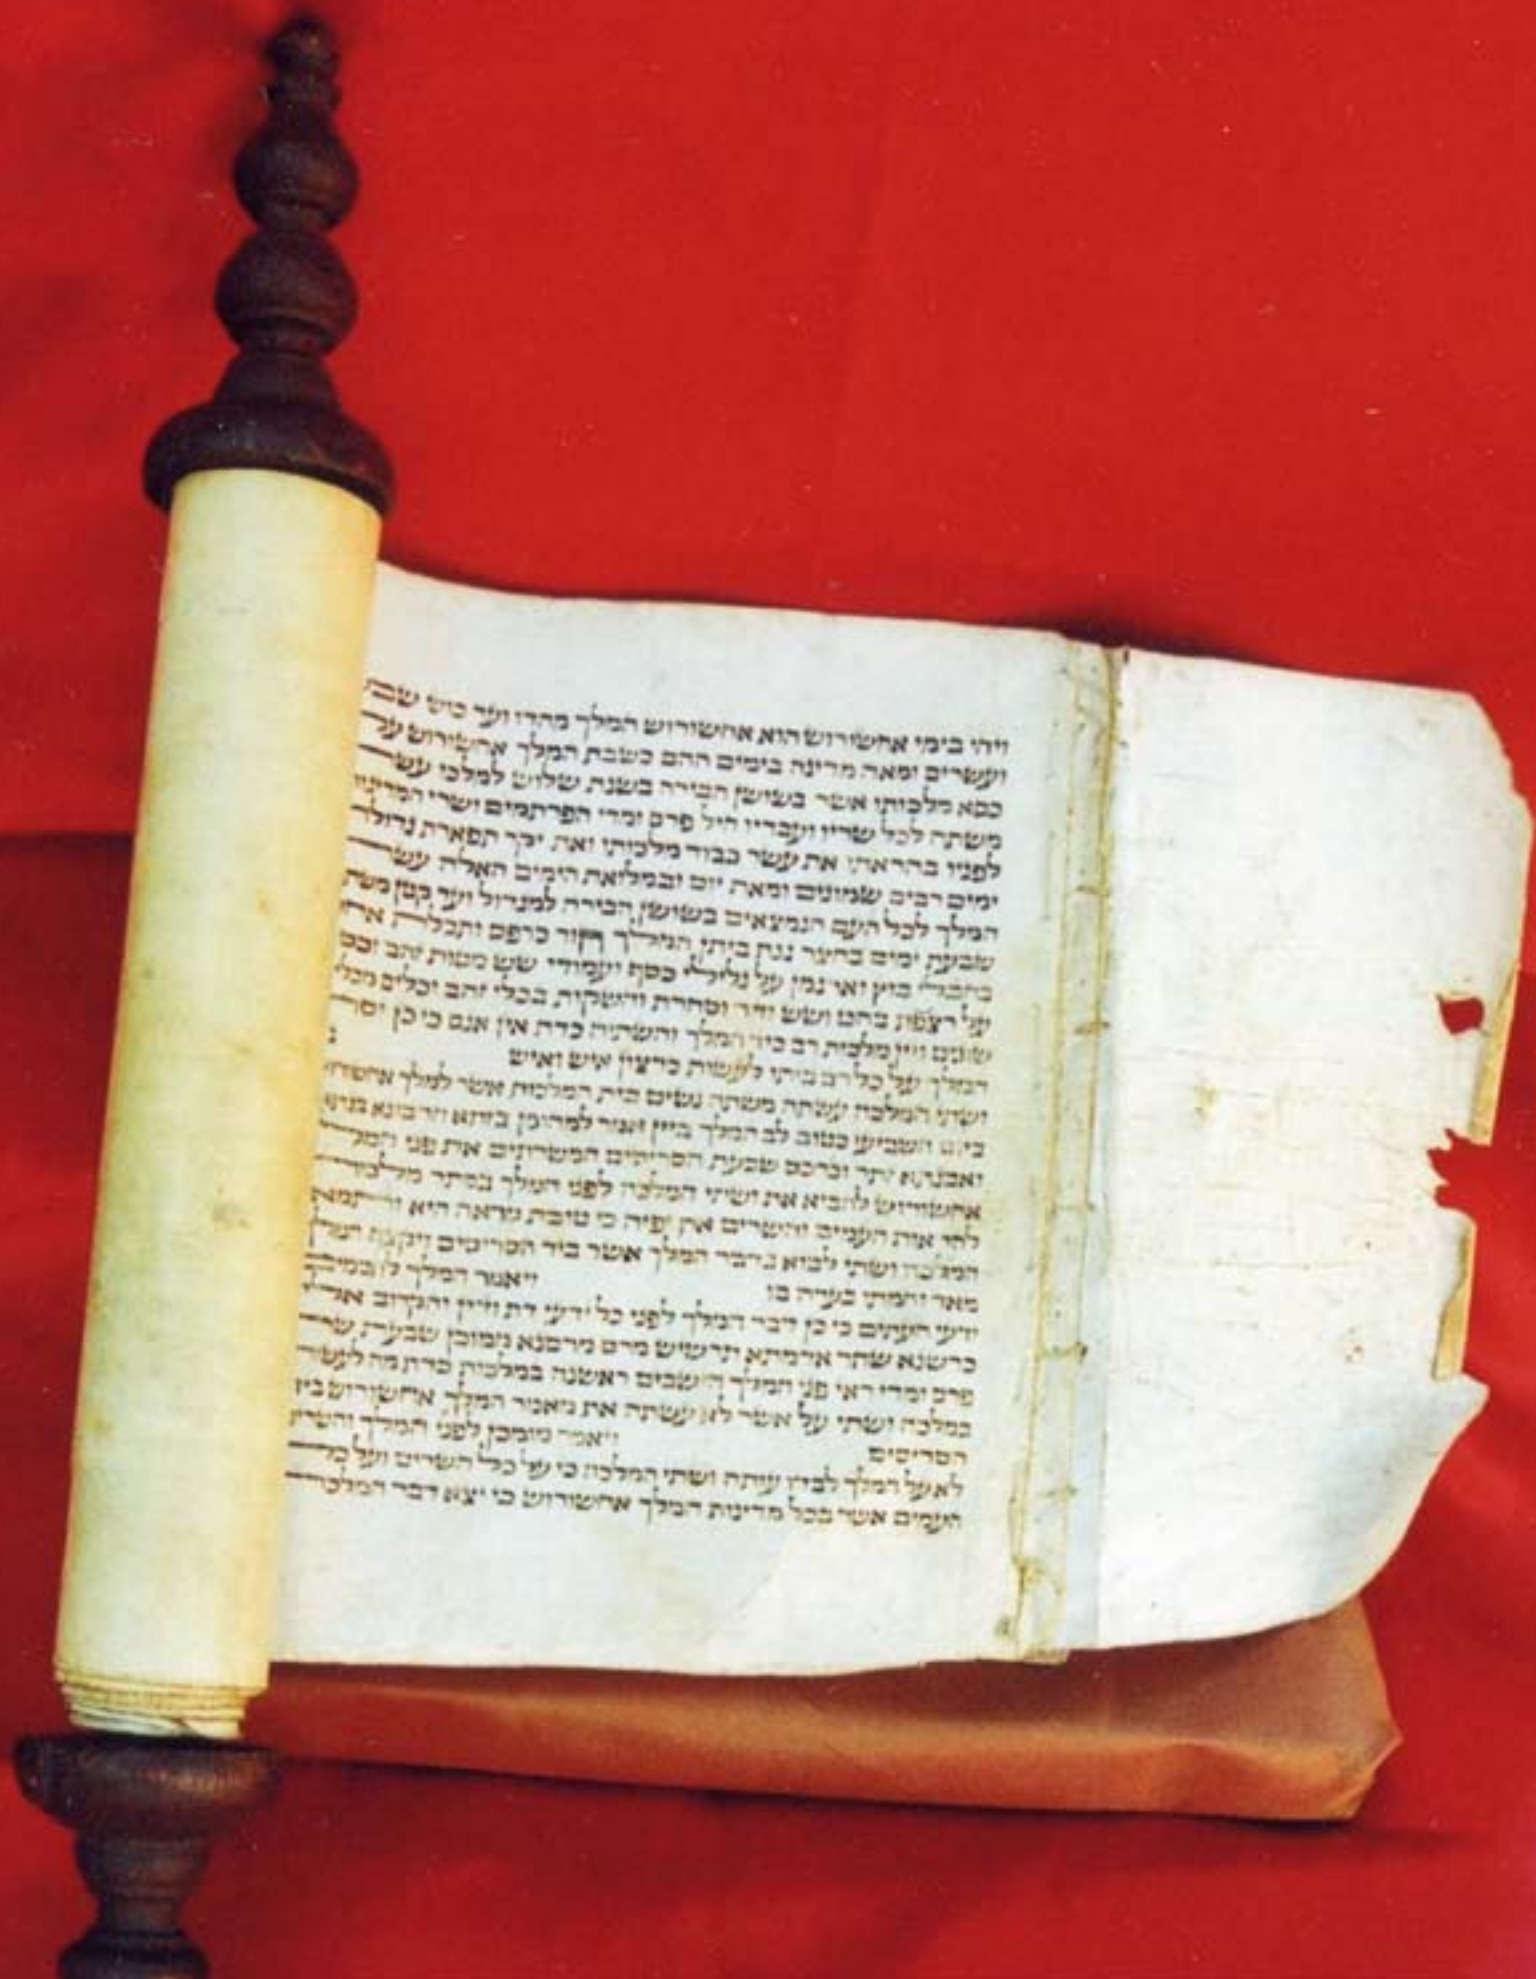 ויהי בימי אחשורוש הוא אחשורוש המלך מהדו ועד כוש שבע
ועשרים ומאה מדינה בימים ההם כשבת המלך אחשורוש על
כסא מלכותו אשר בשושן הבירה בשנת שלוש למלכו עשה
משתה לכל שריו ועבדיו חיל פרס ומדי הפרתמים ושרי
לפניו בהראתו את עשר כבוד מלכותו ואת יקר תפארת
ימים רבים שמונים ומאת יום ובמלואת הימים האלה עשה
המלך לכל העם הנמצאים בשושן הבירה למגדול ועד קטן
שבעת ימים בחצר גנת ביתן המלך חור כרפס ותכלת
בחבלי בוץ וארגמן על גלילי כסף ועמודי שש מטות זהב
על רצפת בהט ושש ודר וסחרת והשקות בכלי זהב וכלים
שונים ויין מלכות רב כיד המלך והשתיה כדת אין אנס כי כן יסד
המלך על כל רב ביתו לעשות כרצון איש ואיש
ושתי המלכה עשתה משתה נשים בית המלכות אשר למלך
ביום השביעי כטוב לב המלך ביין אמר למהומן בזתא חרבונא
ואבגתא זתר וכרכס שבעת הסריסים המשרתים את פני המלך
אחשורוש להביא את ושתי המלכה לפני המלך בכתר מלכות
להראות העמים והשרים את יפיה כי טובת מראה היא ותמאן
המלכה ושתי לבוא בדבר המלך אשר ביד הסריסים ויקצף המלך
מאד וחמתו בערה בו ויאמר המלך
ידעי העתים כי כן דבר המלך לפני כל ידעי דת ודין והקרוב
כרשנא שתר אדמתא תרשיש מרס מרסנא ממוכן שבעת שרי
פרס ומדי ראי פני המלך הישבים ראשנה במלכות כדת מה
במלכה ושתי על אשר לא עשתה את מאמר המלך אחשורוש
הסריסים ויאמר מומכן לפני המלך
לא על המלך לבדו עותה ושתי המלכה כי על כל השרים ועל כל
העמים אשר בכל מדינות המלך אחשורוש כי יצא דבר המלכה